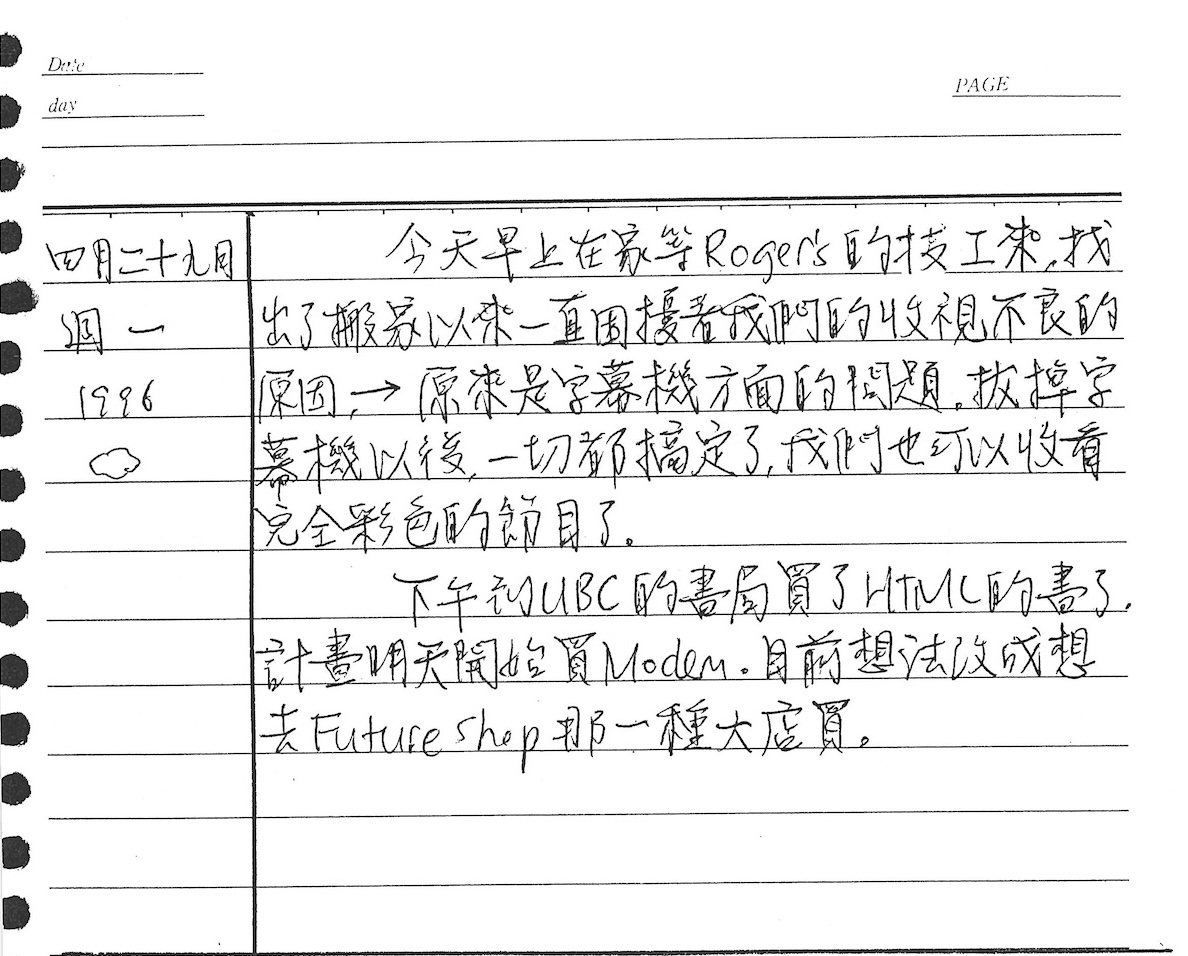 Date
day
PAGE
四月二十九日
週一
1996
今天早上在家等Roger's的技工來,找
出了搬家以來一直困擾著我們的收視不良的
原因,→原來是字幕機方面的問題。拔掉字
幕機以後,一切都搞定了,我們也可以收看
完全彩色的節目了。
下午到UBC的書局買了HTML的書了,
計畫明天開始買Modem。目前想法改成想
去Future shop那一種大店買。